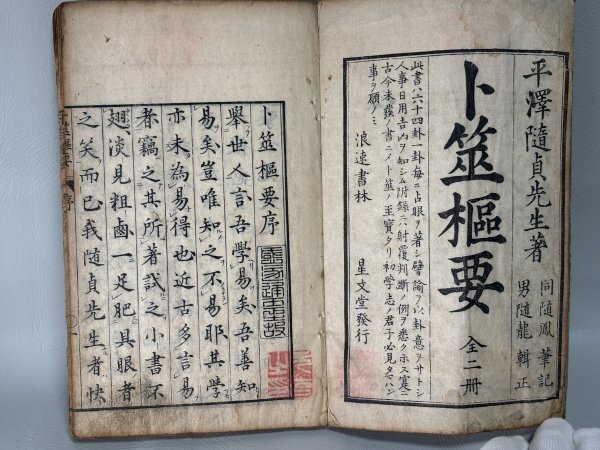 平澤隨貞先生著
同隨鳳筆記
男隨龍輯正
卜筮樞要 全二冊
此書ハ六十四卦一卦每ニ占眼ヲ著シ譬諭ヲ以卦意ヲサトシ
人事日用吉凶ヲ知シム附録ニハ射覆判斷ノ例ヲ悉クホス寔ニ
古今未發ノ書ニノト筮ノ至寶タリ初學志ノ君子必見タマハン
事ヲ願フミ
浪速書林 星文堂發行
卜筮樞要序
擧世人言吾學易矣吾善知
易矣豈唯知之不易耶其學
亦未為易得也近古多言易
者竊之其所著試之小書不
翅淡見粗鹵一足肥其眼者
之笑而已我隨貞先生者快
卜筮樞要 序